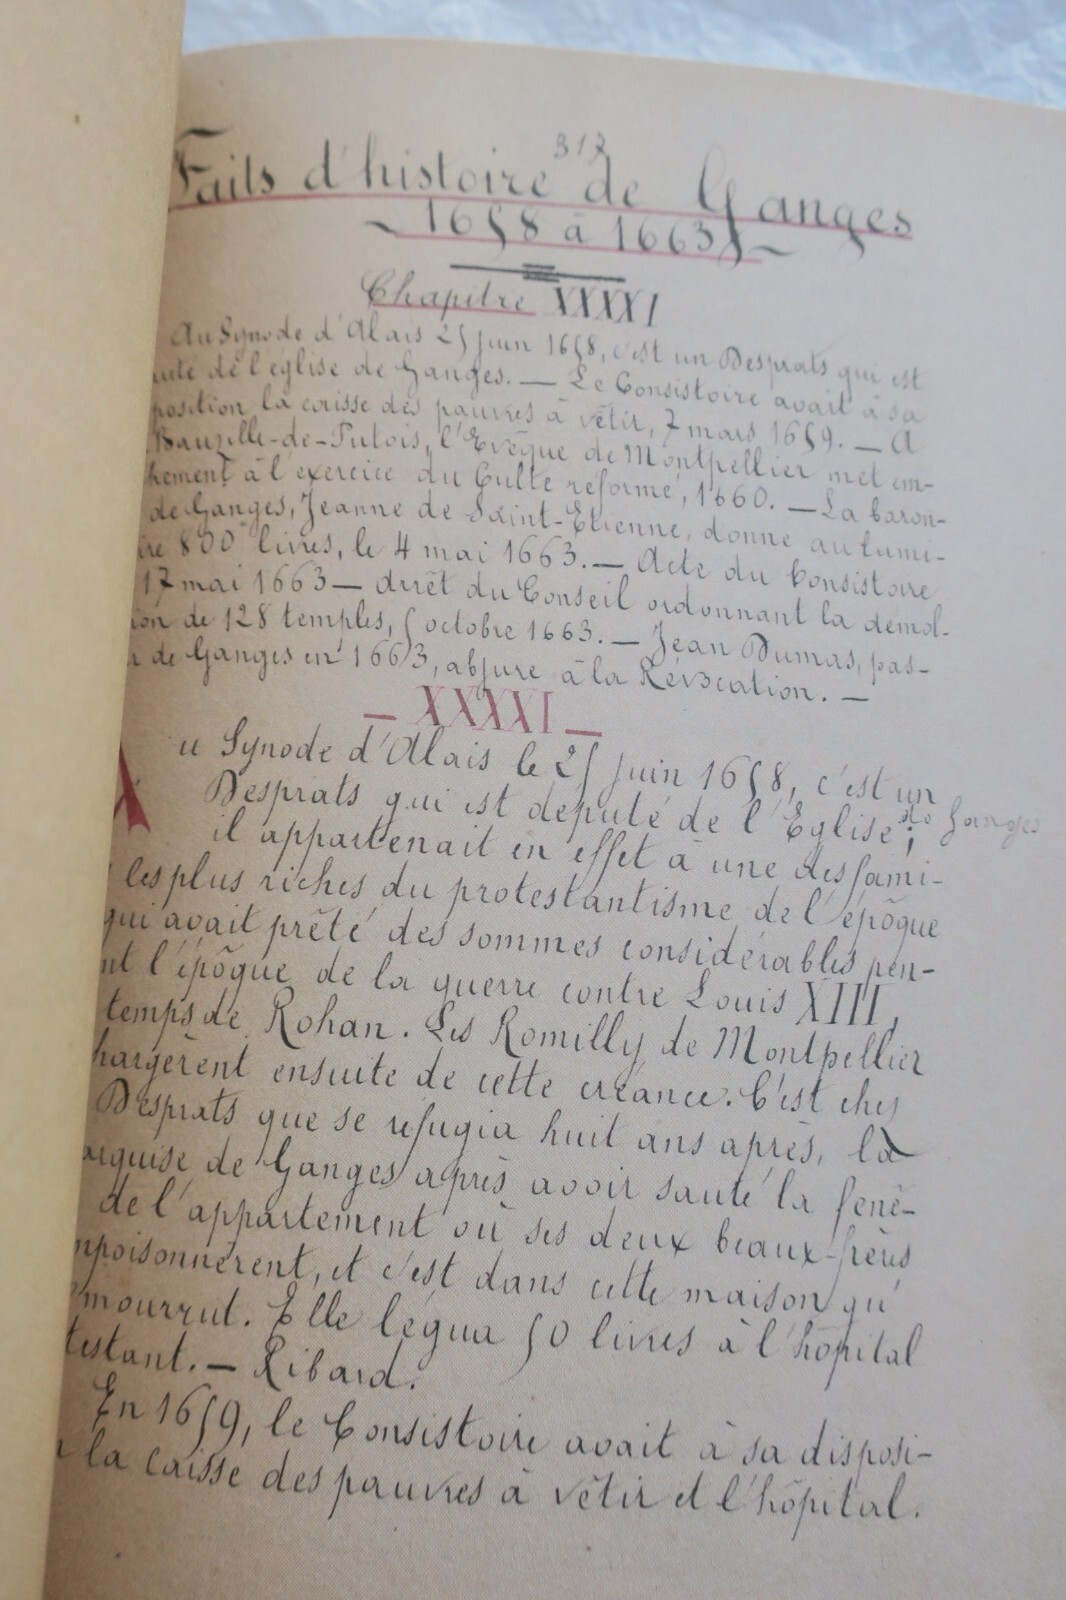 317
Faits d'histoire de Ganges
~ 1658 à 1663 ~
Chapitre XXXXI
Au Synode d'Alais 25 juin 1658, c'est un Desprats qui est
uté de l'église de Ganges. — Le Consistoire avait à sa
position la caisse des pauvres à vêtir, 7 mars 1659. — A
Bauzille-de-Putois, l'Evêque de Montpellier met em-
hement à l'exercice du Culte réformé, 1660. — La baron-
de Ganges, Jeanne de Saint-Etienne, donne au lumi-
ire 800 livres, le 4 mai 1663. — Acte du Consistoire
17 mai 1663 — Arrêt du Conseil ordonnant la démol-
ion de 128 temples, 5 octobre 1663. — Jean Dumas, pas-
r de Ganges en 1663, abjure à la Révocation. —
— XXXXI —
Au Synode d'Alais le 25 juin 1658, c'est un
Desprats qui est député de l'Eglise de Ganges;
il appartenait en effet à une des fami-
les plus riches du protestantisme de l'épôque
qui avait prêté des sommes considérables pen-
nt l'épôque de la guerre contre Louis XIII,
temps de Rohan. Les Romilly de Montpellier
hargèrent ensuite de cette créance. C'est chez
Desprats que se réfugia huit ans après, la
arquise de Ganges après avoir sauté la fenê-
de l'appartement où ses deux beaux-frères
mpoisonnèrent, et c'est dans cette maison qu'
mourrut. Elle légua 50 livres à l'hôpital
testant. — Ribard.
En 1659, le Consistoire avait à sa disposi-
n la caisse des pauvres à vêtir et l'hôpital.